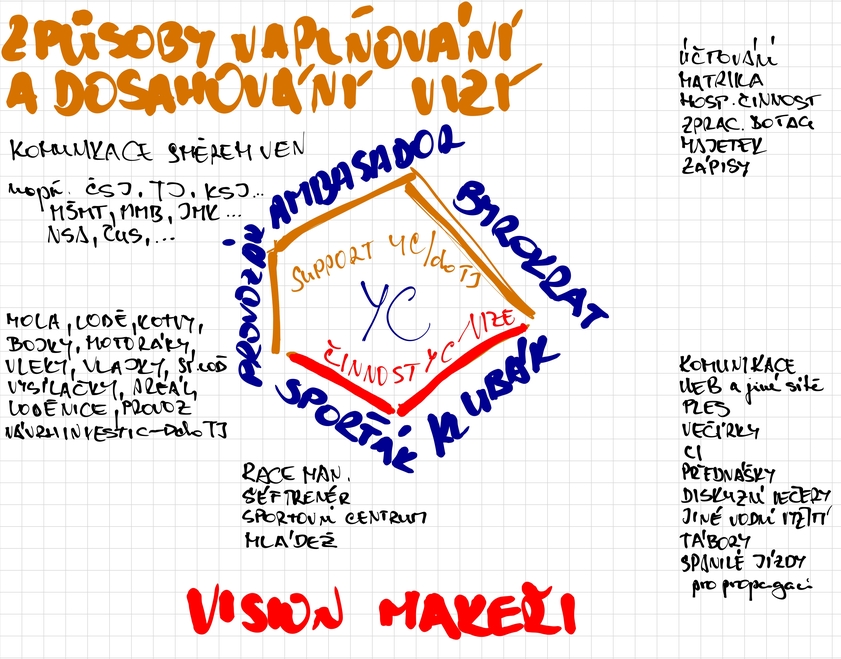 ZPŮSOBY NAPLŇOVÁNÍ
A DOSAHOVÁNÍ VIZÍ
KOMUNIKACE SMĚREM VEN
např. ČSJ, TJ, KSJ...
MŠMT, MMB, JMK...
NSA, ČUS,...
ÚČTOVÁNÍ
MATRIKA
HOSP. ČINNOST
ZPRAC. DOTACÍ
MAJETEK
ZÁPISY
AMBASADOR
BYROKRAT
PROVOZÁK
SPORŤÁK
KLUBÁK
SUPPORT YC/do TJ
YC
ČINNOST YC VIZE
MOLA, LODĚ, KOTVY,
BOJKY, MOTORÁKY,
VLEKY, VLAJKY, ST. LOĎ
VYSÍLAČKY, AREÁL,
LODĚNICE, PROVOZ
NÁVRH INVESTIC - DO TJ
RACE MAN.
ŠÉFTRENÉR
SPORTOVNÍ CENTRUM
MLÁDEŽ
KOMUNIKACE
WEB a jiné sítě
PLES
VEČÍRKY
CI
PŘEDNÁŠKY
DISKUZNÍ VEČERY
JINÉ VODNÍ VYŽITÍ
TÁBORY
SPANILÉ JÍZDY
pro propagaci
VISION MAKEŘI